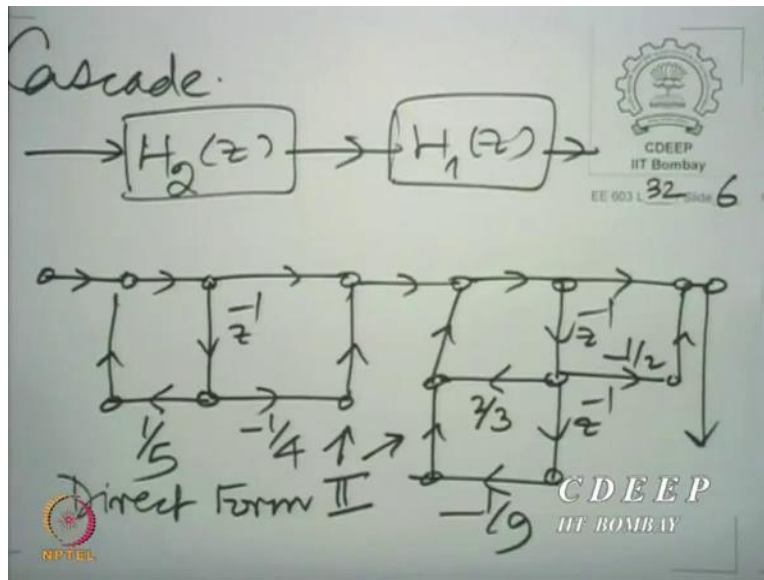 Cascade.
H₂(z)
H₁(z)
CDEEP
IIT Bombay
EE 603 L 32 Slide 6
z⁻¹
z⁻¹
-1/2
1/5
-1/4
2/3
z⁻¹
Direct Form II
-1/9
CDEEP
IIT BOMBAY
NPTEL